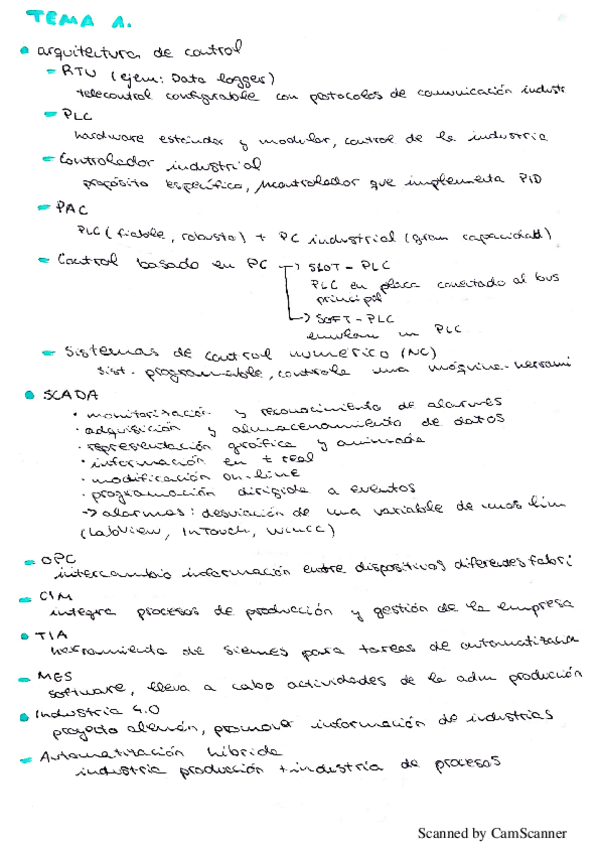 TEMA 1.
arquitectura de control
- RTU (ejem: Data logger)
telecontrol configurable con protocolos de comunicación industr
- PLC
hardware estándar y modular, control de la industria
- Controlador industrial
propósito específico, μcontrolador que implementa PID
- PAC
PLC (fiable, robusto) + PC industrial (gran capacidad)
- Control basado en PC → SLOT - PLC
PLC en placa conectado al bus
principal
→ SOFT - PLC
emulan un PLC
- Sistemas de control numerico (NC)
sist. programable, controla una máquina-herrami
SCADA
· monitorización y reconocimiento de alarmes
· adquisición y almacenamiento de datos
· representación gráfica y animada
· información en t real
· modificación on-line
· programación dirigida a eventos
-> alarmas: desviación de una variable de unos lim
(LabView, InTouch, WinCC)
- OPC
intercambio información entre dispositivos diferentes fabri
- CIM
integra procesos de producción y gestión de la empresa
· TIA
herramienta de Siemes para tareas de automatización
- MES
software, lleva a cabo actividades de la adm produción
Industria 4.0
proyecto alemán, promover información de industrias
- Automatización híbrida
industria producción + industria de procesos
Scanned by CamScanner